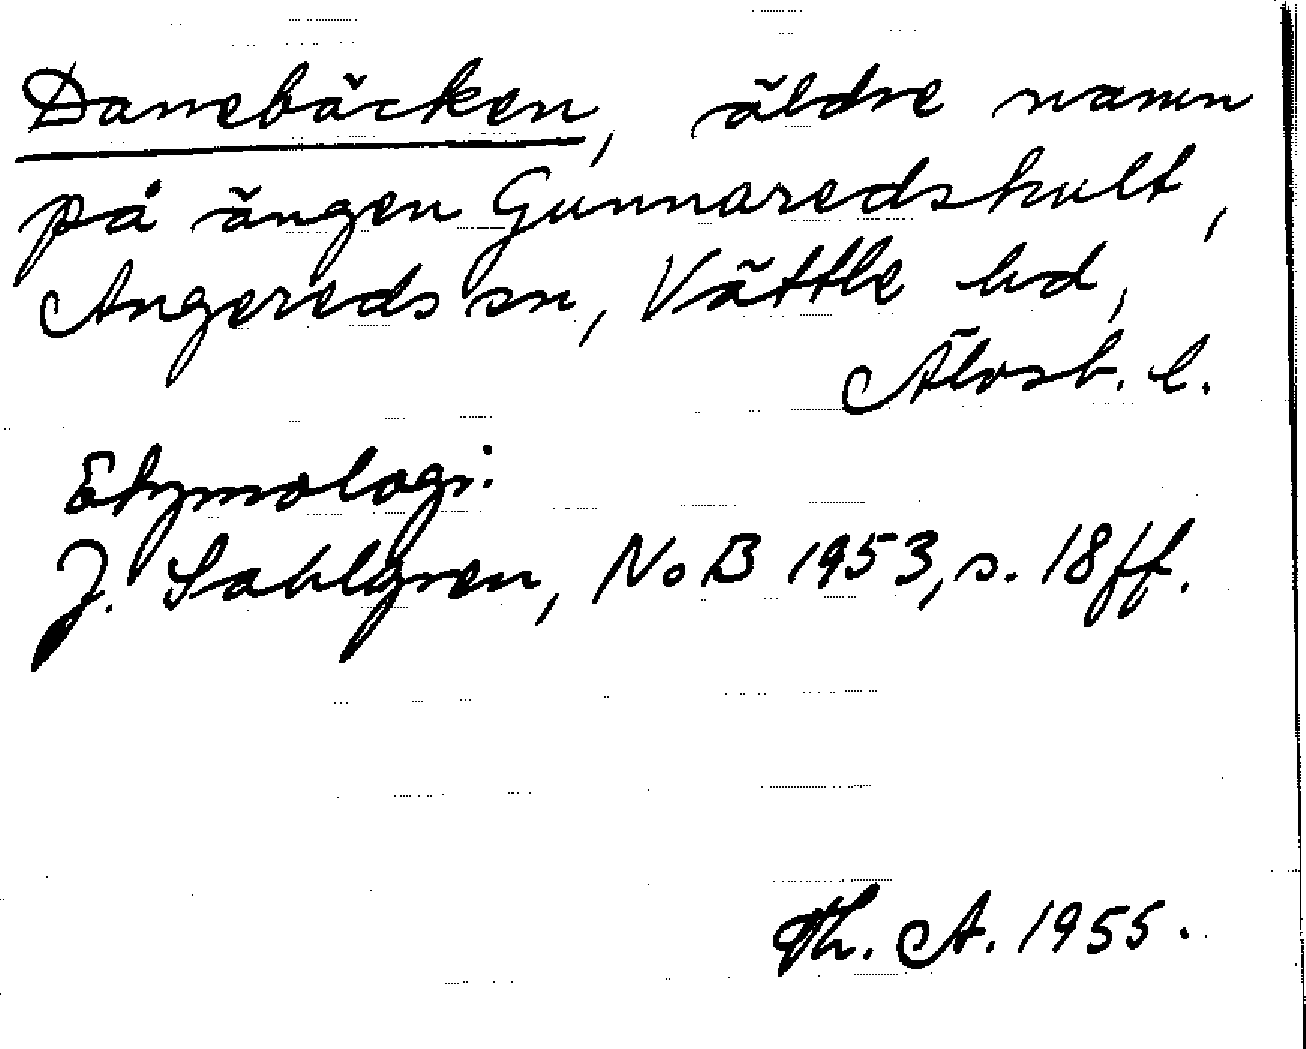 Danebäcken, äldre namn
på ängen Gunnaredshult,
Angereds sn, Vättle hd,
Älvsb. l.
Etymologi:
J. Sahlgren, NoB 1953, s. 18 ff.
Th. A. 1955.